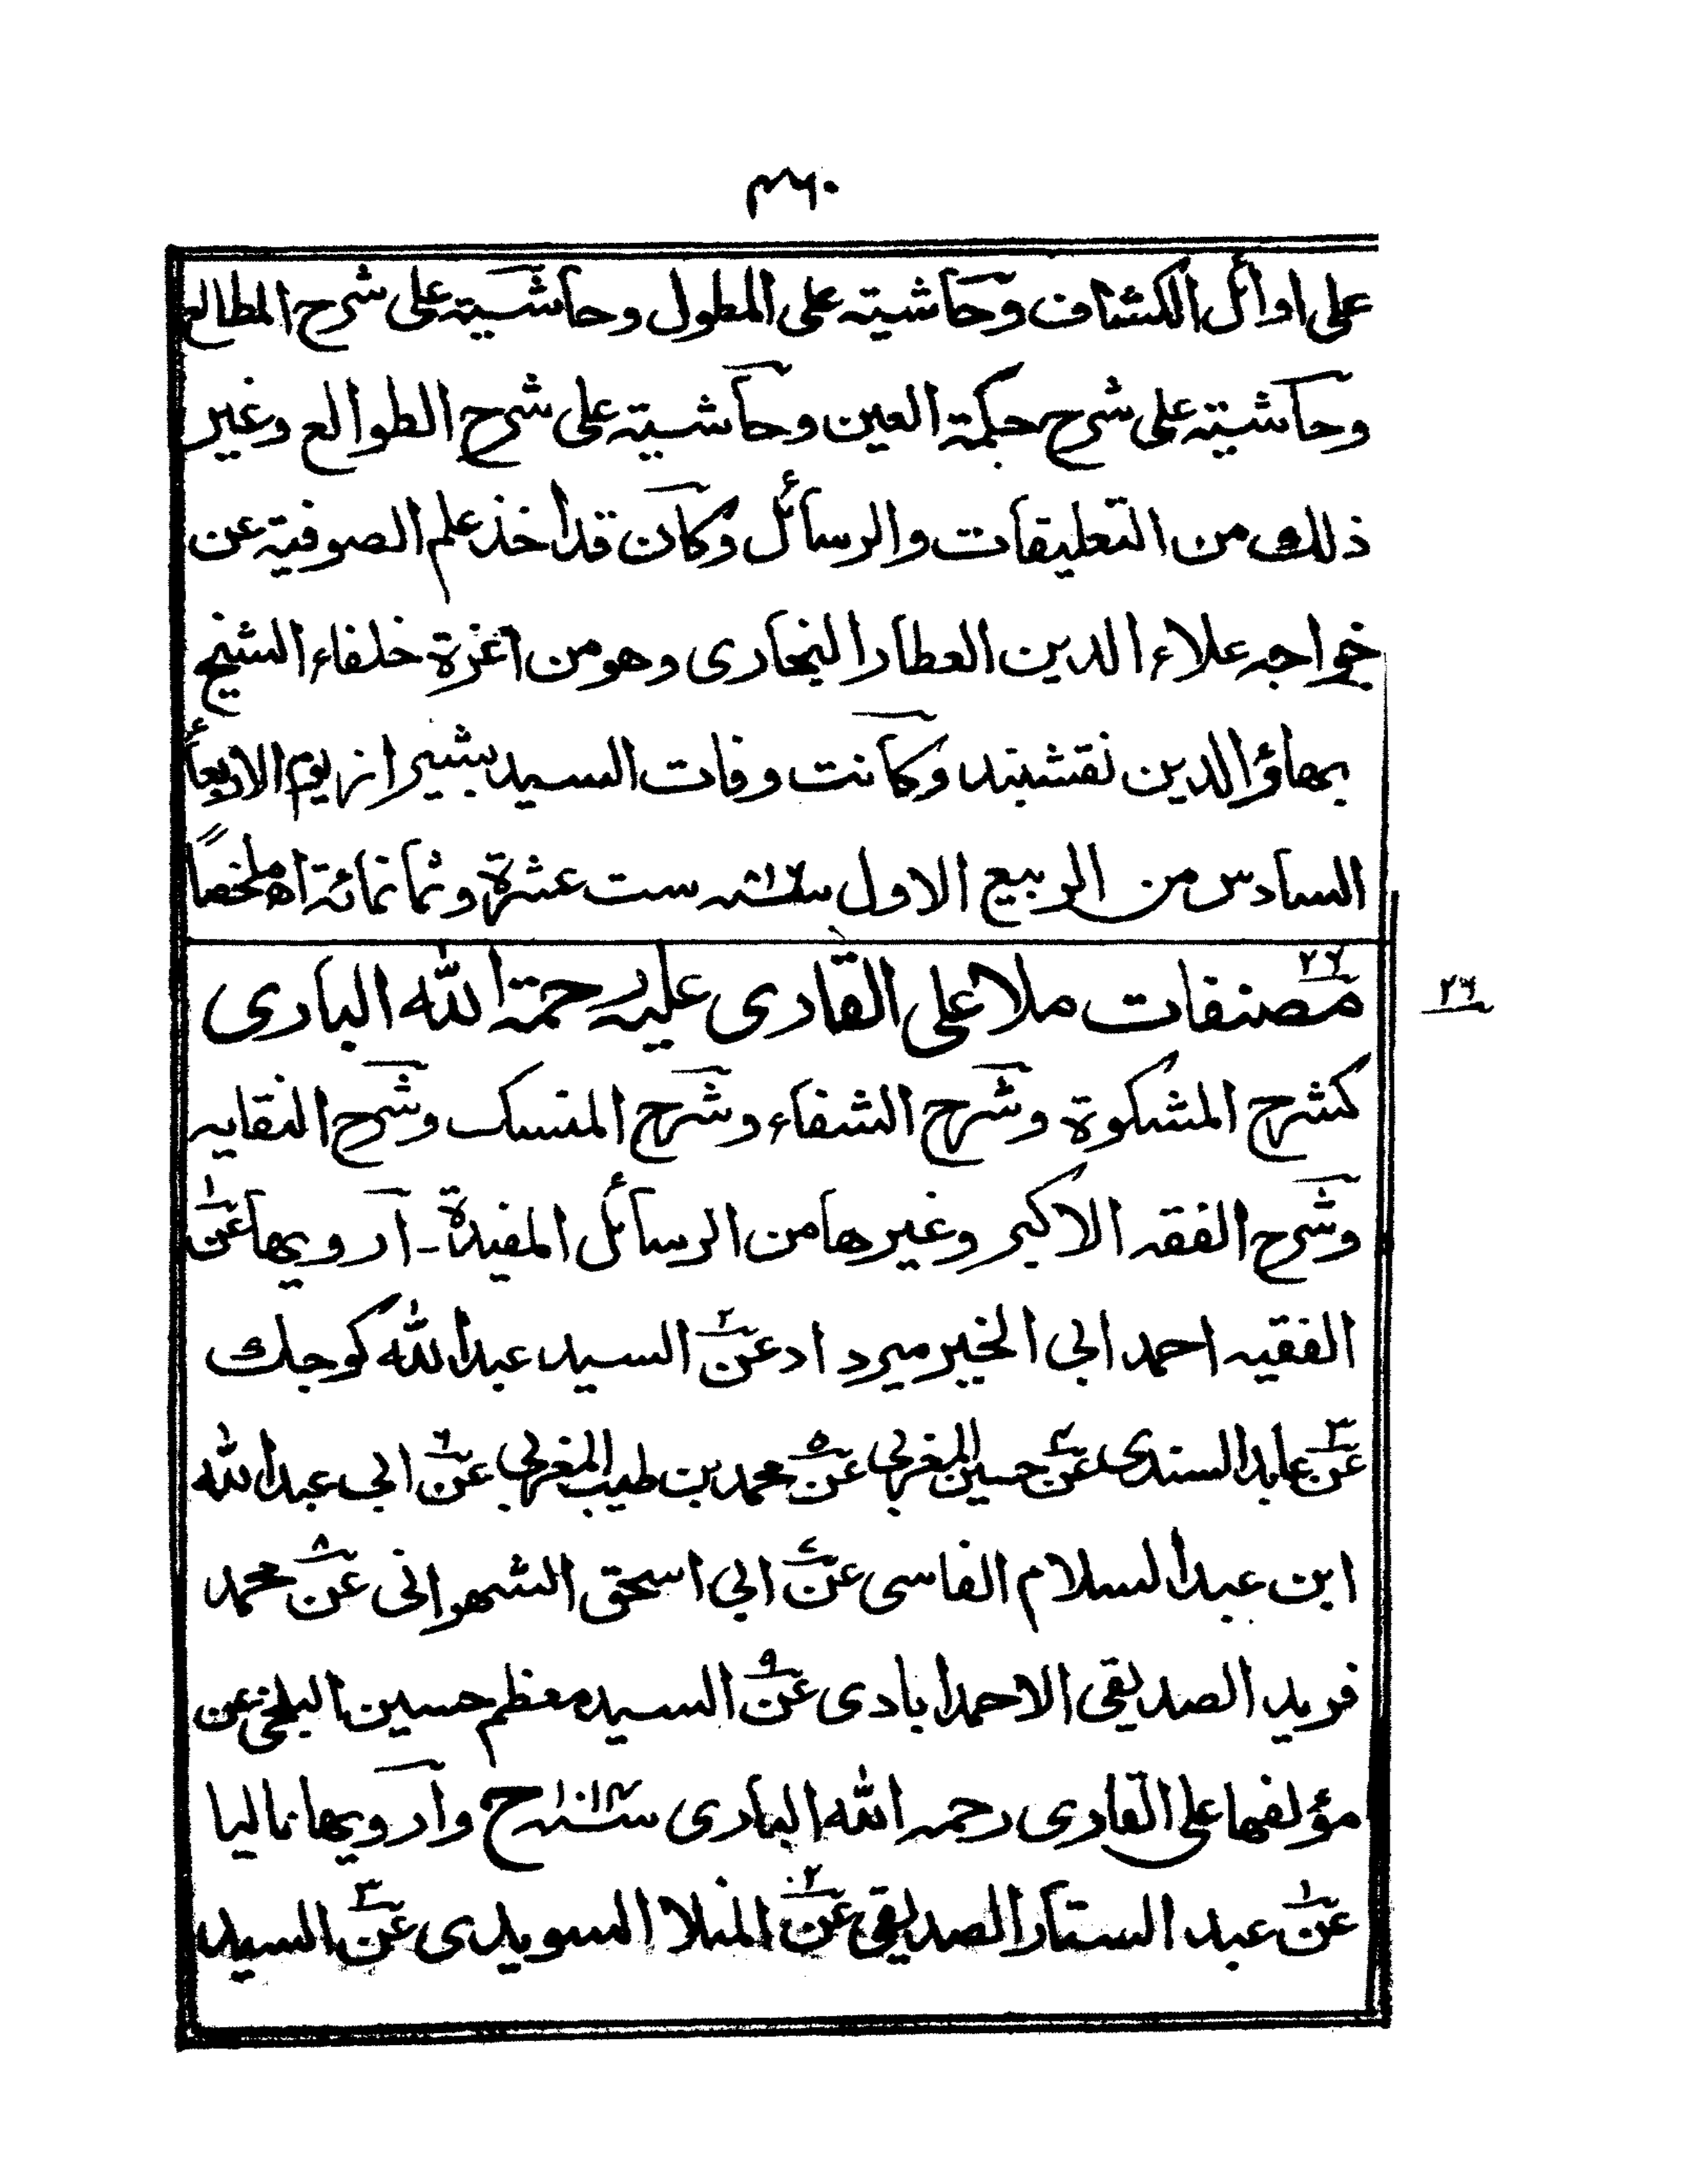 ٤٦٠
على اوائل الكشاف وحاشيته على المطول وحاشيته على شرح المطالع
وحاشيته على شرح حكمة العين وحاشيته على شرح الطوالع وغير
ذلك من التعليقات والرسائل وكان قد اخذ علم الصوفية عن
خواجه علاء الدين العطار البخاري وهو من اعزة خلفاء الشيخ
بهاؤ الدين نقشبند وكانت وفات السيد بشيراز يوم الاربعأ
السادس من الربيع الاول سنه ٨١٦ ست عشرة وثمانمائة اه ملخصاً
٢٦
مصنفات ملا على القارى عليه رحمة الله البارى
٢٦
كشرح المشكوة وشرح الشفاء وشرح المنسك وشرح النقايه
وشرح الفقه الاكبر وغيرها من الرسائل المفيدة - ارويها عن١
الفقيه احمد ابي الخير ميرداد عن٢ السيد عبدالله كوجك
عن٣ عابد السندى عن٤ حسين المغربي عن٥ محمد بن طيب المغربي عن٦ ابي عبدالله
ابن عبد السلام الفاسى عن٧ ابي اسحق الشهرانى عن٨ محمد
فريد الصديقى الاحمدابادى عن٩ السيد معظم حسين البلخى عن
مؤلفها على القارى رحمه الله البارى سنه ١٠١٤ ح وارويها ناليا
عن١ عبد الستار الصديقى عن٢ المنلا السويدى عن٣ السيد